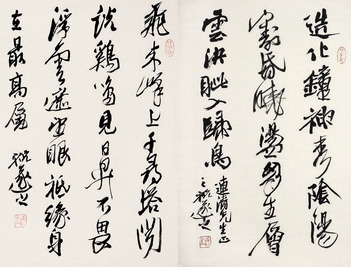 造化鍾神秀陰陽
割昏曉盪胸生層
雲決眥入歸鳥
先生正
飛來峰上千尋塔聞
說鷄鳴見日昇不畏
浮雲遮望眼祇緣身
在最高層